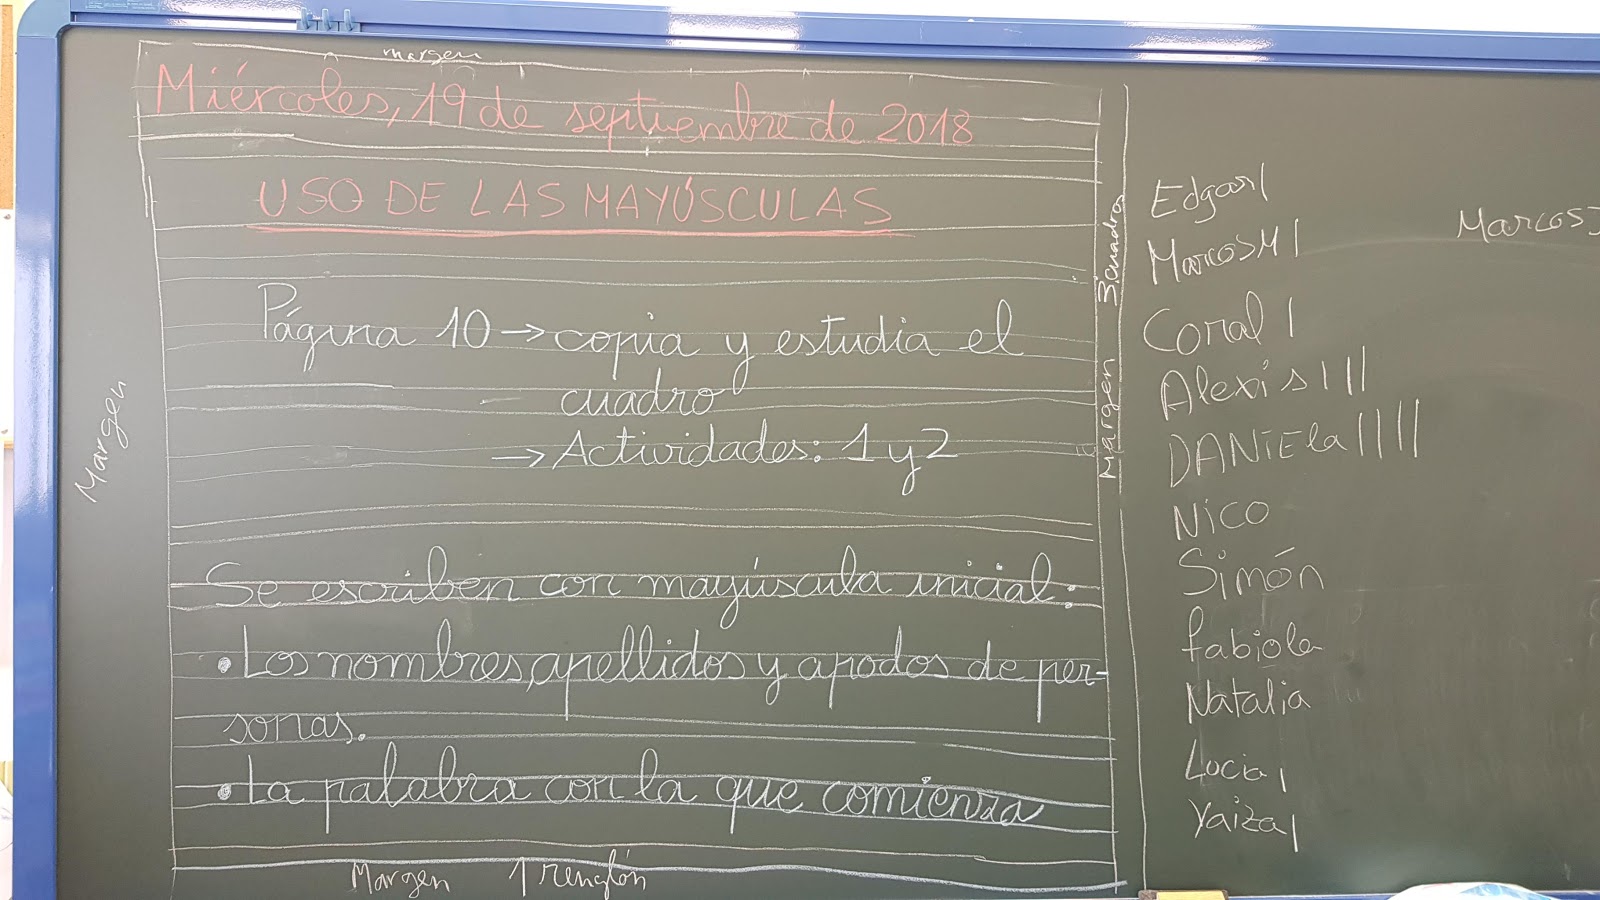 margen
Miércoles, 19 de septiembre de 2018
USO DE LAS MAYÚSCULAS
Página 10 → copia y estudia el
cuadro
→ Actividades: 1 y 2
Se escriben con mayúscula inicial:
• Los nombres, apellidos y apodos de per-
sonas.
• La palabra con la que comienza
Margen 1 renglón
Margen
Margen 3 cuadros
Edgar |
Marcos M |
Coral |
Alexis | | |
DANiEla | | | |
Nico
Simón
fabiola
Natalia
Lucia |
Yaiza |
Marcos J